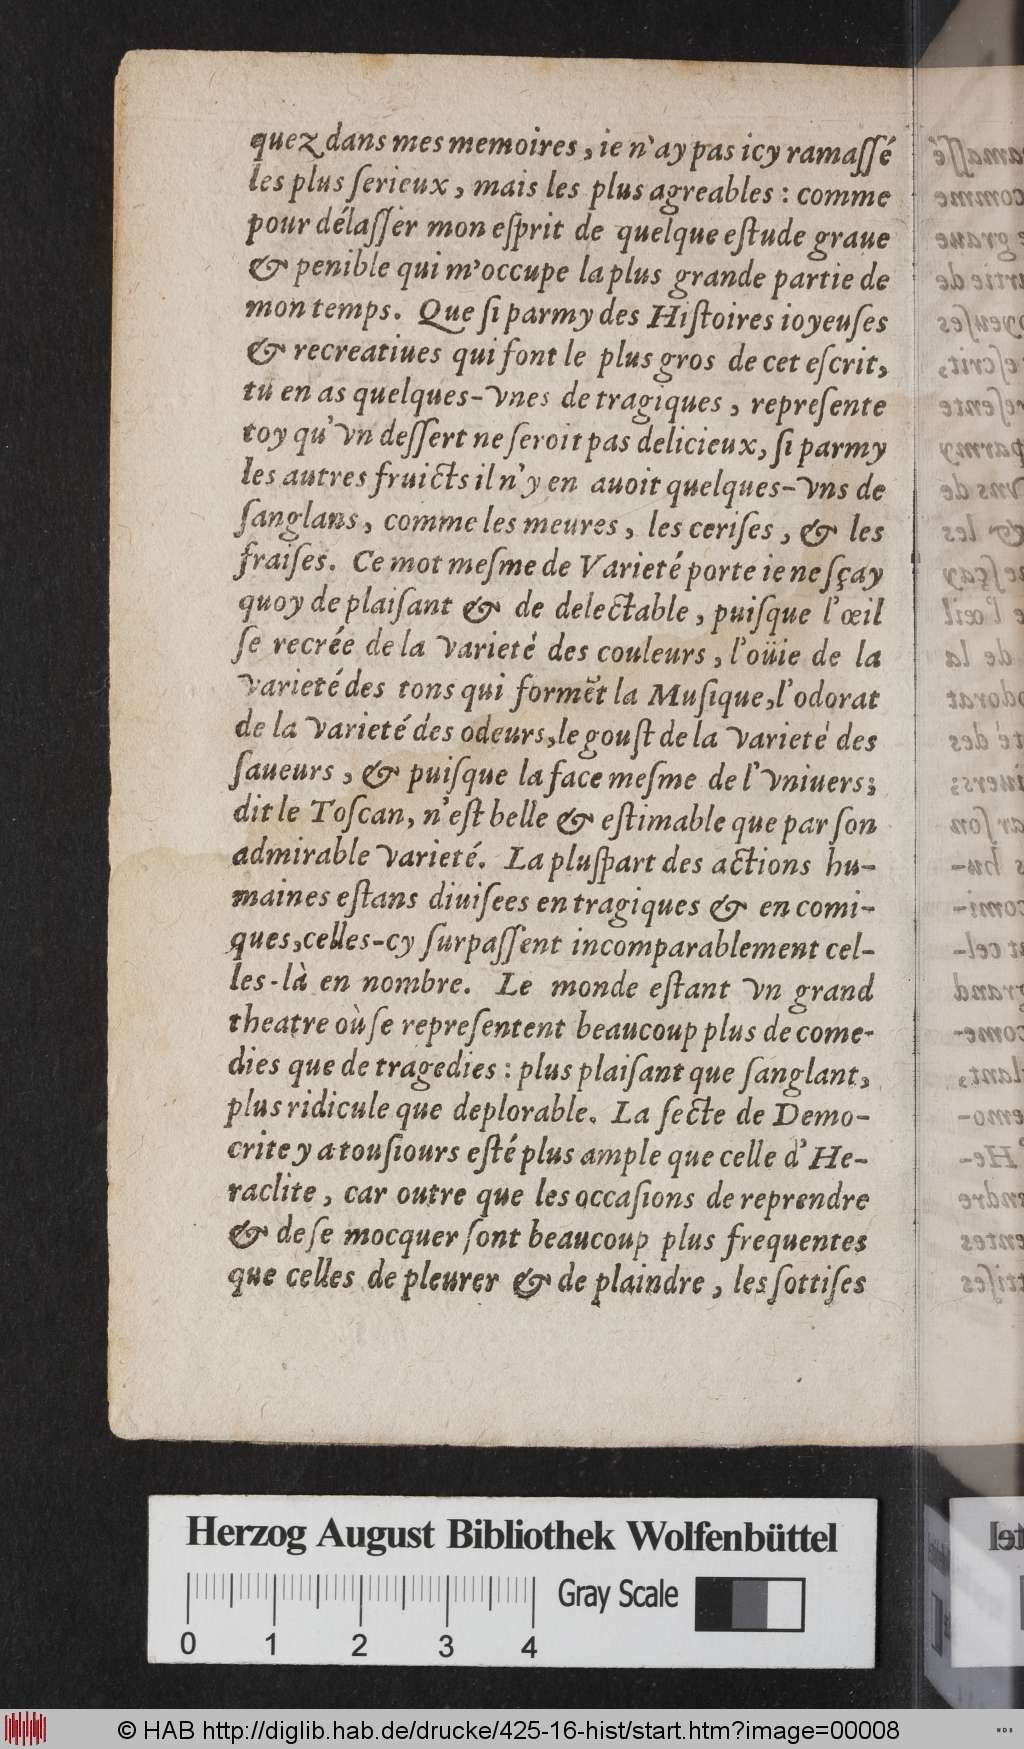 quez dans mes memoires, ie n'ay pas icy ramaſſé
les plus ſerieux, mais les plus agreables : comme
pour délaſſer mon eſprit de quelque eſtude graue
& penible qui m'occupe la plus grande partie de
mon temps. Que ſi parmy des Hiſtoires ioyeuſes
& recreatiues qui font le plus gros de cet eſcrit,
tu en as quelques-vnes de tragiques, repreſente
toy qu'vn deſſert ne ſeroit pas delicieux, ſi parmy
les autres fruicts il n'y en auoit quelques-vns de
ſanglans, comme les meures, les ceriſes, & les
fraiſes. Ce mot meſme de Varieté porte ie ne ſçay
quoy de plaiſant & de delectable, puiſque l'œil
ſe recrée de la varieté des couleurs, l'oüie de la
varieté des tons qui formēt la Muſique, l'odorat
de la varieté des odeurs, le gouſt de la varieté des
ſaueurs, & puiſque la face meſme de l'vniuers;
dit le Toſcan, n'eſt belle & eſtimable que par ſon
admirable varieté. La pluſpart des actions hu-
maines eſtans diuiſees en tragiques & en comi-
ques, celles-cy ſurpaſſent incomparablement cel-
les-là en nombre. Le monde eſtant vn grand
theatre où ſe repreſentent beaucoup plus de come-
dies que de tragedies : plus plaiſant que ſanglant,
plus ridicule que deplorable. La ſecte de Demo-
crite y a touſiours eſté plus ample que celle d'He-
raclite, car outre que les occaſions de reprendre
& de ſe mocquer ſont beaucoup plus frequentes
que celles de pleurer & de plaindre, les ſottiſes
Herzog August Bibliothek Wolfenbüttel
Gray Scale
0 1 2 3 4
© HAB http://diglib.hab.de/drucke/425-16-hist/start.htm?image=00008